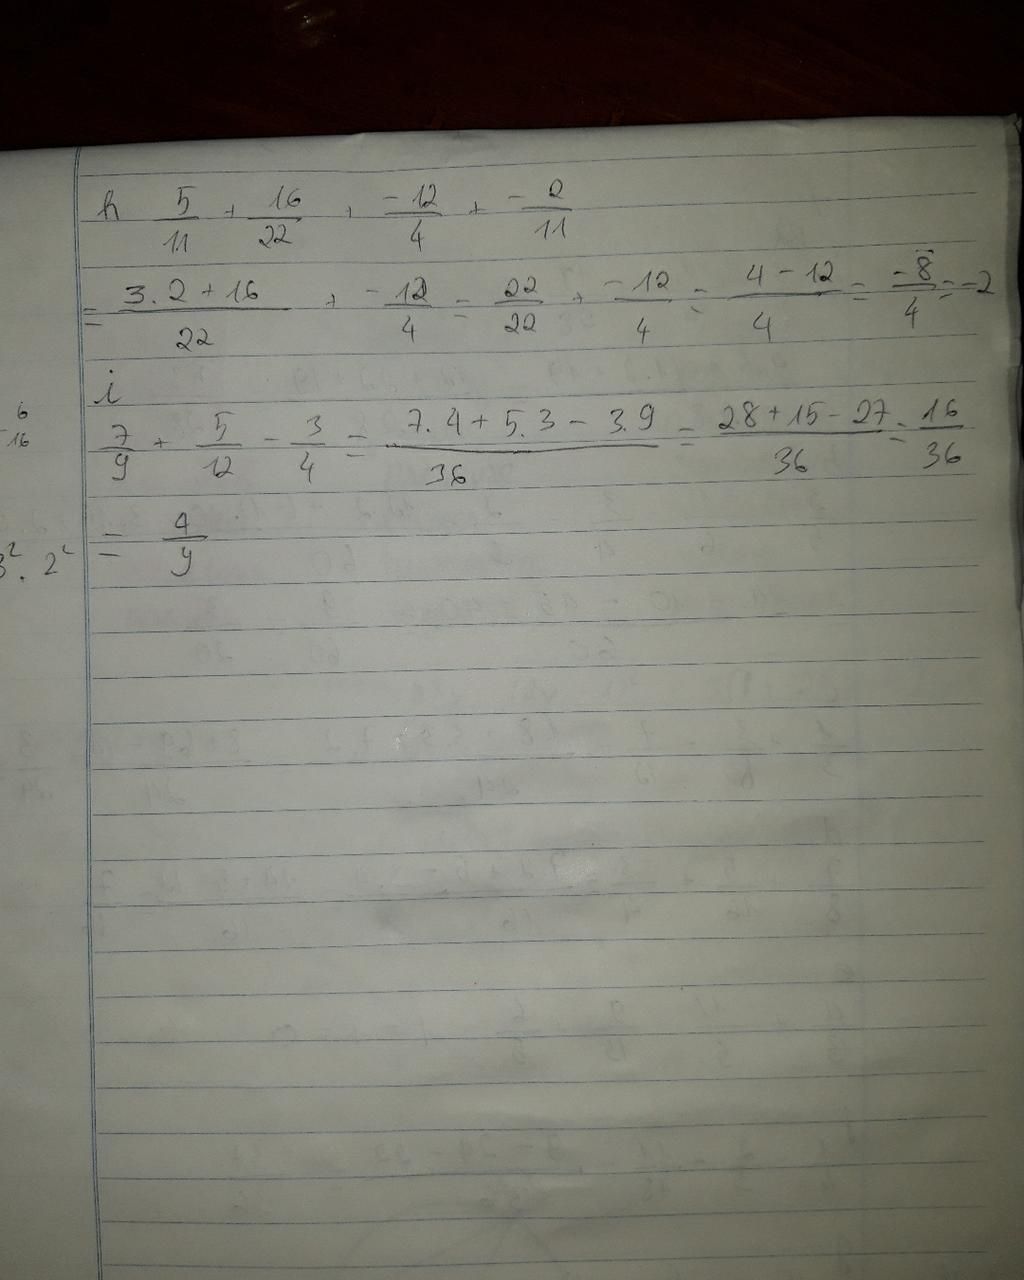 h 5/11 + 16/22 + -12/4 + -2/11
= 3.2+16/22 + -12/4 = 22/22 + -12/4 = 4-12/4 = -8/4 = -2
i
7/9 + 5/12 - 3/4 = 7.4+5.3-3.9/36 = 28+15-27/36 = 16/36
= 4/9
6
-16
3². 2²